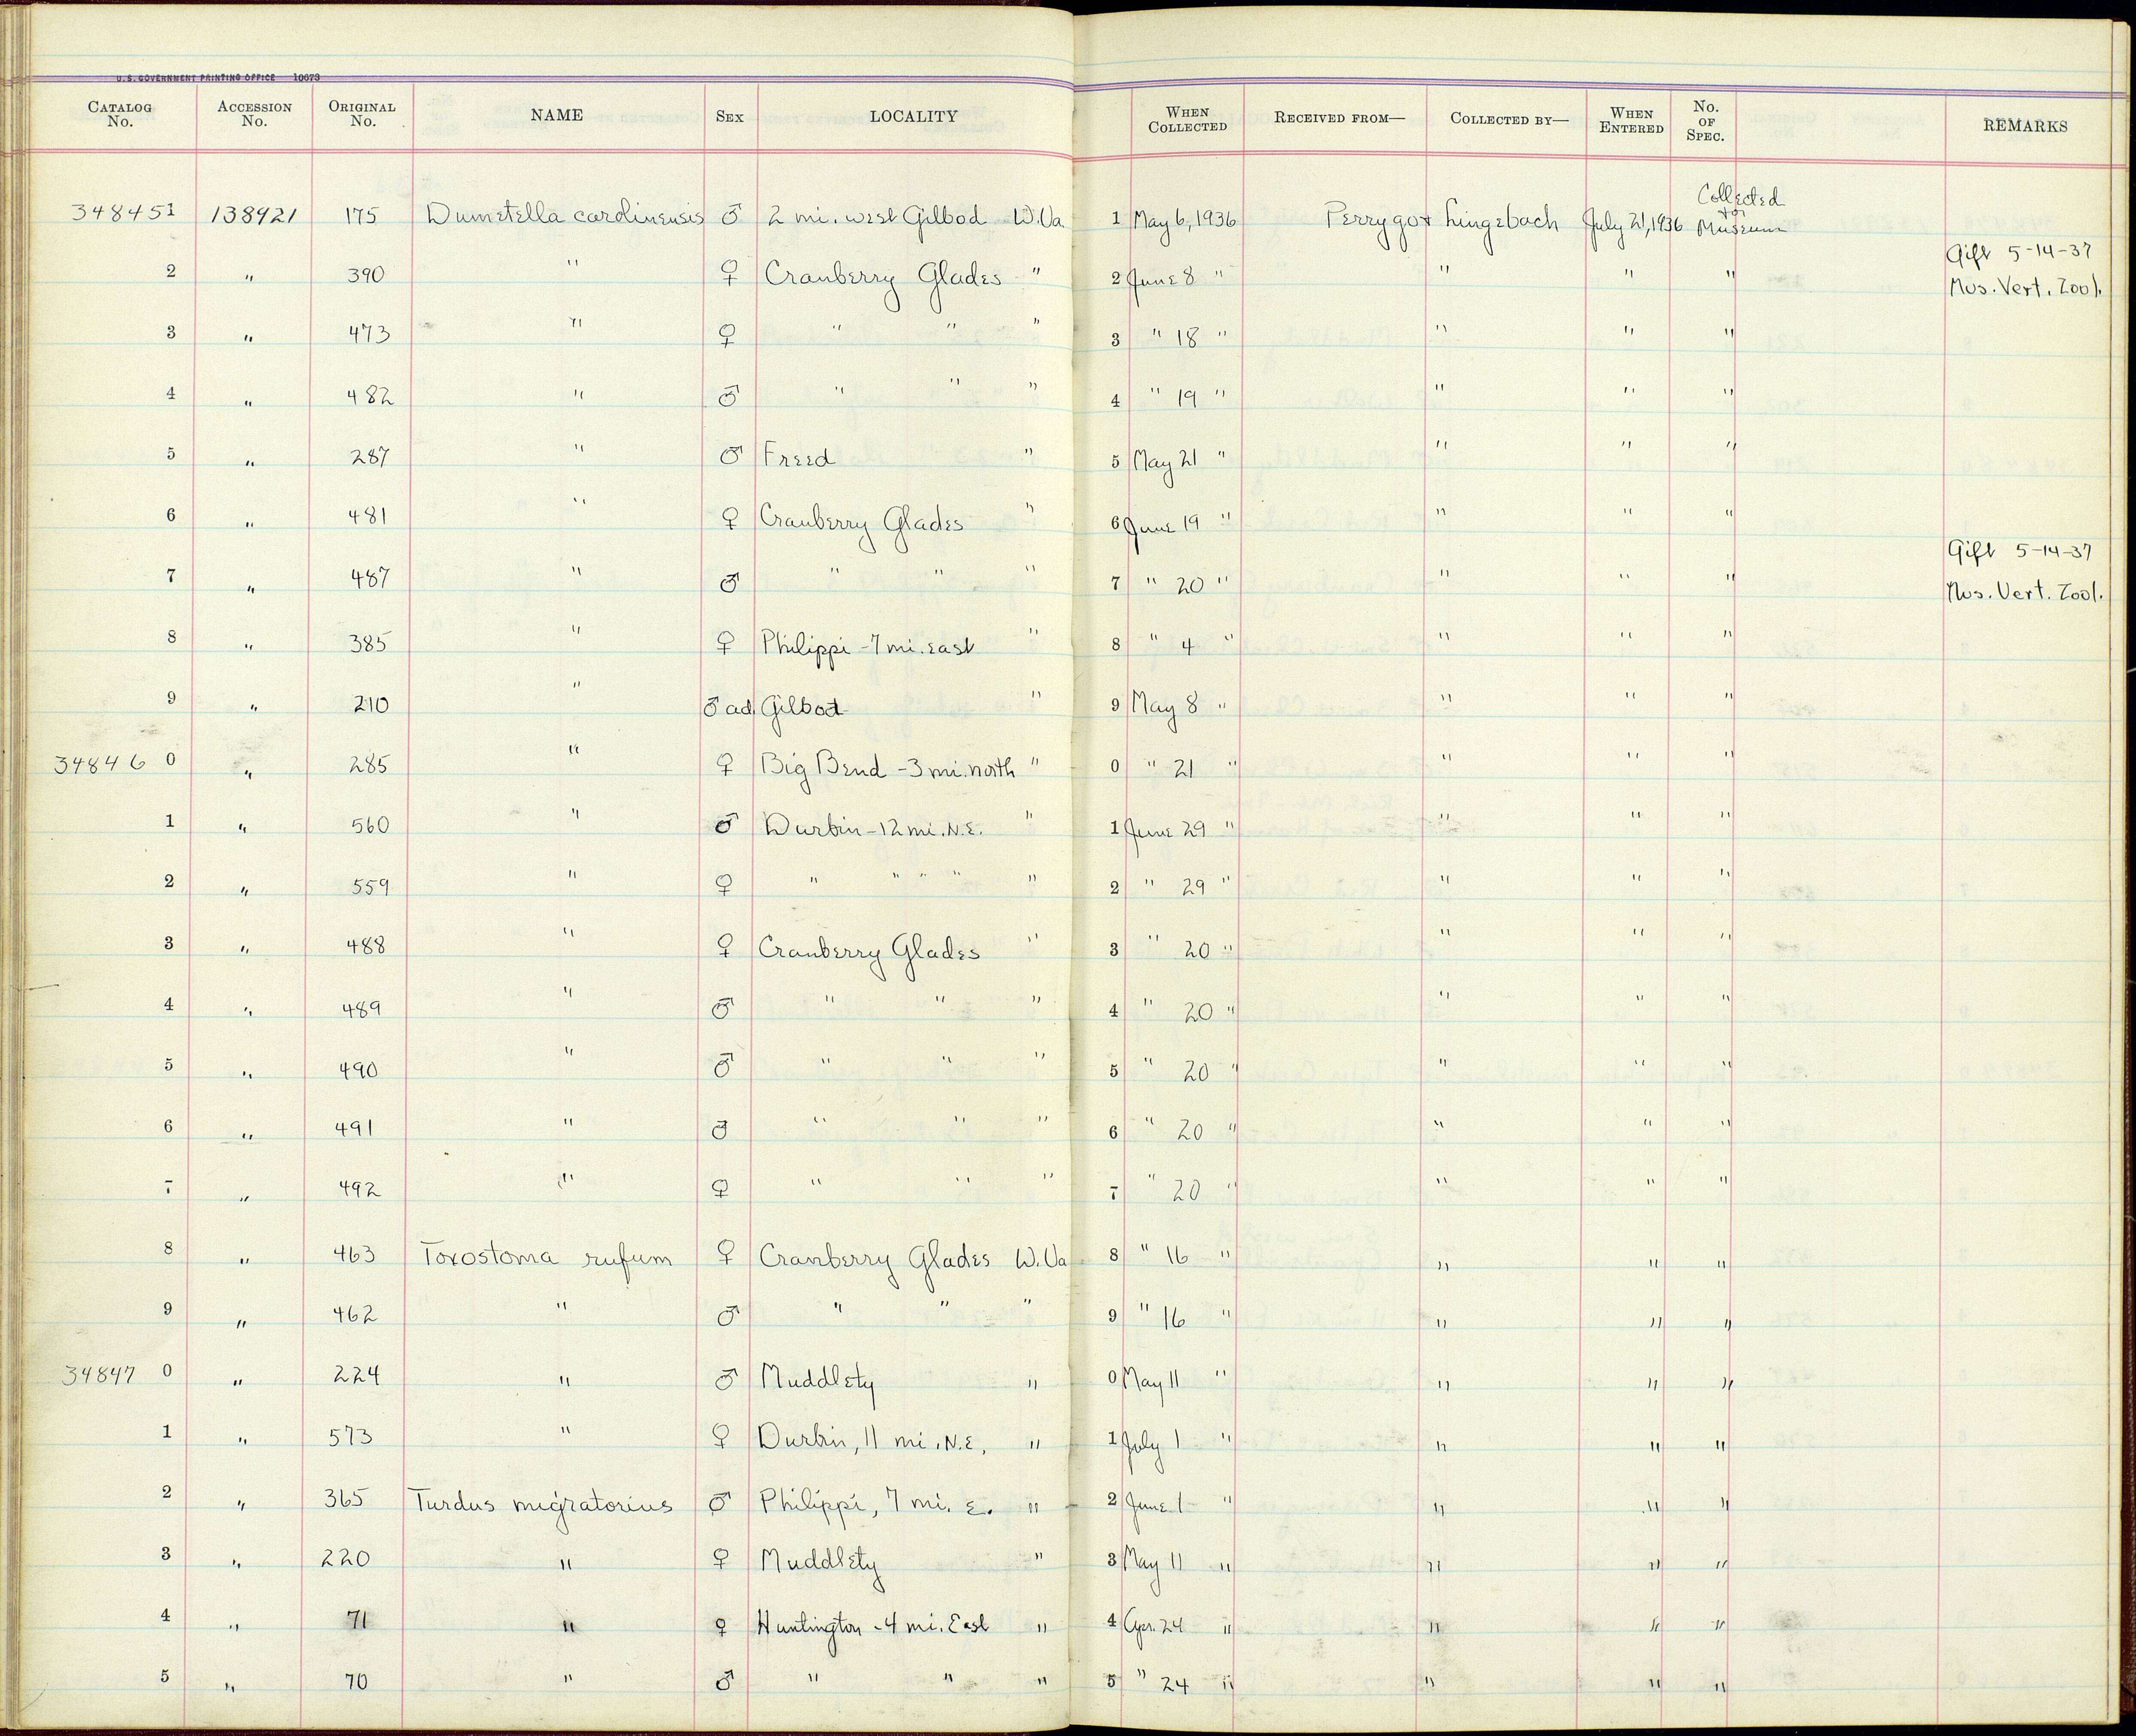 U.S. GOVERNMENT PRINTING OFFICE 10673
CATALOG No. ACCESSION No. ORIGINAL No. NAME SEX LOCALITY WHEN COLLECTED RECEIVED FROM— COLLECTED BY— WHEN ENTERED No. OF SPEC. REMARKS
348451 138921 175 Dumetella carolinensis ♂ 2 mi. west Gilbod W.Va. 1 May 6, 1936 Perrygo & Lingebach July 21, 1936 Collected for Museum
2 " 390 " ♀ Cranberry Glades " 2 June 8 " " " " Gift 5-14-37 Mus. Vert. Zool.
3 " 473 " ♀ " " " 3 " 18 " " " "
4 " 482 " ♂ " " " 4 " 19 " " " "
5 " 287 " ♂ Freed " 5 May 21 " " " "
6 " 481 " ♀ Cranberry Glades " 6 June 19 " " " "
7 " 487 " ♂ " " " 7 " 20 " " " " Gift 5-14-37 Mus. Vert. Zool.
8 " 385 " ♀ Philippi - 7 mi. east " 8 " 4 " " " "
9 " 210 " ♂ ad Gilbod " 9 May 8 " " " "
348460 " 285 " ♀ Big Bend - 3 mi. north " 0 " 21 " " " "
1 " 560 " ♂ Durbin - 12 mi. N.E. " 1 June 29 " " " "
2 " 559 " ♀ " " " " " 2 " 29 " " " "
3 " 488 " ♀ Cranberry Glades " 3 " 20 " " " "
4 " 489 " ♂ " " " 4 " 20 " " " "
5 " 490 " ♂ " " " 5 " 20 " " " "
6 " 491 " ♂ " " " 6 " 20 " " " "
7 " 492 " ♀ " " " 7 " 20 " " " "
8 " 463 Toxostoma rufum ♀ Cranberry Glades W.Va 8 " 16 " " " "
9 " 462 " ♂ " " " 9 " 16 " " " "
348470 " 224 " ♂ Muddlety " 0 May 11 " " " "
1 " 573 " ♀ Durbin, 11 mi. N.E. " 1 July 1 " " " "
2 " 365 Turdus migratorius ♂ Philippi, 7 mi. E. " 2 June 1 " " " "
3 " 220 " ♀ Muddlety " 3 May 11 " " " "
4 " 71 " ♀ Huntington - 4 mi. East " 4 Apr. 24 " " " "
5 " 70 " ♂ " " " 5 " 24 " " " "